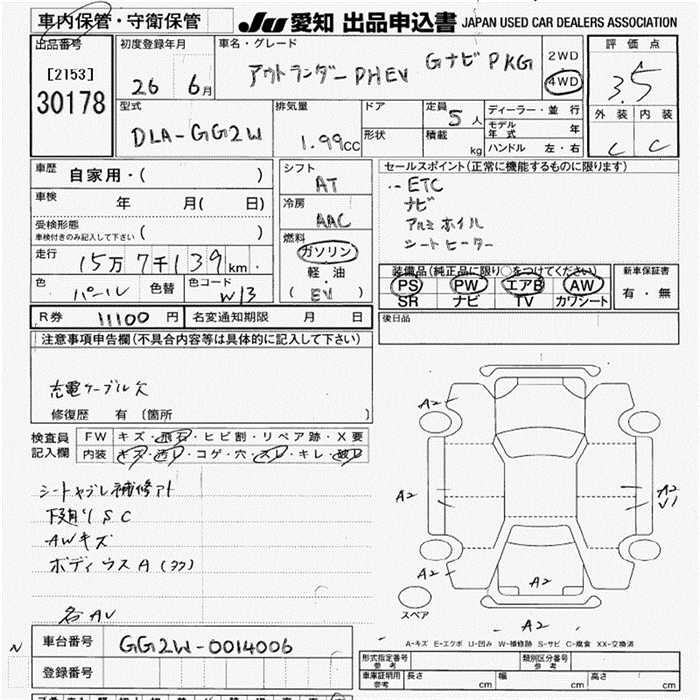 車内保管・守衛保管
JU 愛知 出品申込書 JAPAN USED CAR DEALERS ASSOCIATION
出品番号
[2153]
30178
初度登録年月
26 6月
車名・グレード
アウトランダーPHEV GナビPKG
2WD
4WD
評価点
3.5
外装 内装
C C
型式
DLA-GG2W
排気量
1.99cc
ドア
形状
定員 5人
積載 kg
ディーラー・並行
モデル年式 年
ハンドル 左・右
車歴 自家用・( )
車検 年 月( 日)
受検形態
車検付きのみ記入して下さい ( )
走行 15万7千139km
色 パール 色替 色コード W13
シフト
AT
冷房
AAC
燃料
ガソリン
軽油
・
(EV)
セールスポイント(正常に機能するものに限ります)
ETC
ナビ
アルミホイル
シートヒーター
装備品(純正品に限り○をつけてください)
PS PW エアB AW
SR ナビ TV カワシート
新車保証書
有・無
R券 11100円 名変通知期限 月 日
後日品
注意事項申告欄(不具合内容等は具体的に記入して下さい)
充電ケーブル欠
修復歴 有(箇所 )
検査員記入欄
FW キズ・飛石・ヒビ割・リペア跡・X要
内装 キズ・汚レ・コゲ・穴・スレ・キレ・破レ
シートヤブレ補修アト
下廻りSC
AWキズ
ボディウスA(ワワ)
名AV
A2
A2
A2
V1
A2
A2
A2
スペア
A-キズ E-エクボ U-凹み W-補修跡 S-サビ C-腐食 XX-交換済
N
車台番号 GG2W-0014006
登録番号
形式指定番号 参考
類別区分番号 参考
車庫証明用 参考 長さ cm 幅 cm 高さ cm